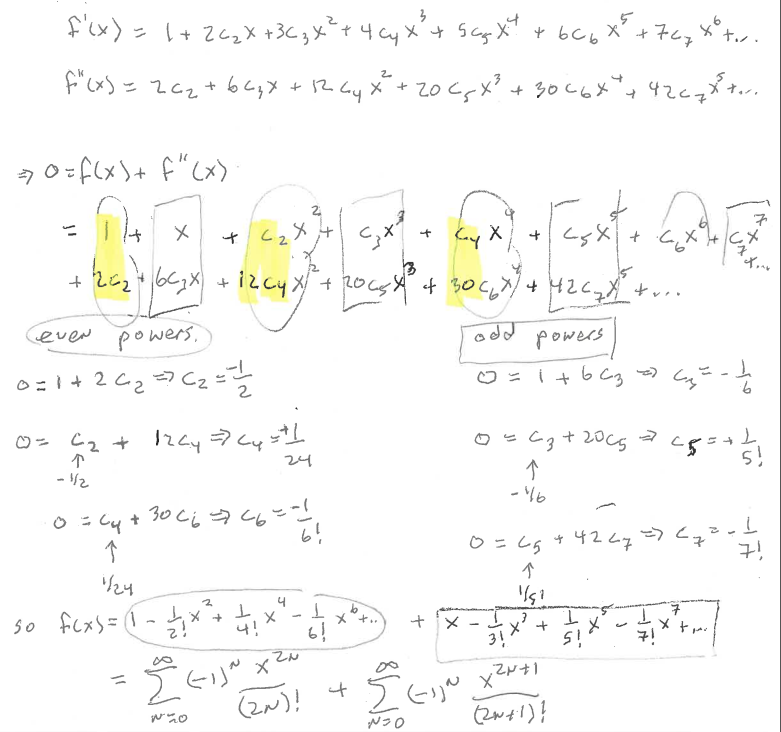 f'(x) = 1 + 2c₂x + 3c₃x² + 4c₄x³ + 5c₅x⁴ + 6c₆x⁵ + 7c₇x⁶ + ...
f''(x) = 2c₂ + 6c₃x + 12c₄x² + 20c₅x³ + 30c₆x⁴ + 42c₇x⁵ + ...
⇒ 0 = f(x) + f''(x)
= 1 + x + c₂x² + c₃x³ + c₄x⁴ + c₅x⁵ + c₆x⁶ + c₇x⁷ + ...
+ 2c₂ + 6c₃x + 12c₄x² + 20c₅x³ + 30c₆x⁴ + 42c₇x⁵ + ...
even powers. odd powers
0 = 1 + 2c₂ ⇒ c₂ = -1/2 0 = 1 + 6c₃ ⇒ c₃ = -1/6
0 = c₂ + 12c₄ ⇒ c₄ = +1/24 0 = c₃ + 20c₅ ⇒ c₅ = +1/5!
↑ ↑
-1/2 -1/6
0 = c₄ + 30c₆ ⇒ c₆ = -1/6! 0 = c₅ + 42c₇ ⇒ c₇ = -1/7!
↑ ↑
1/24 1/5!
so f(x) = 1 - 1/2! x² + 1/4! x⁴ - 1/6! x⁶ + ... + x - 1/3! x³ + 1/5! x⁵ - 1/7! x⁷ + ...
= ∞ ∑ N=0 (-1)ᴺ x²ᴺ/(2N)! + ∞ ∑ N=0 (-1)ᴺ x²ᴺ⁺¹/(2N+1)!